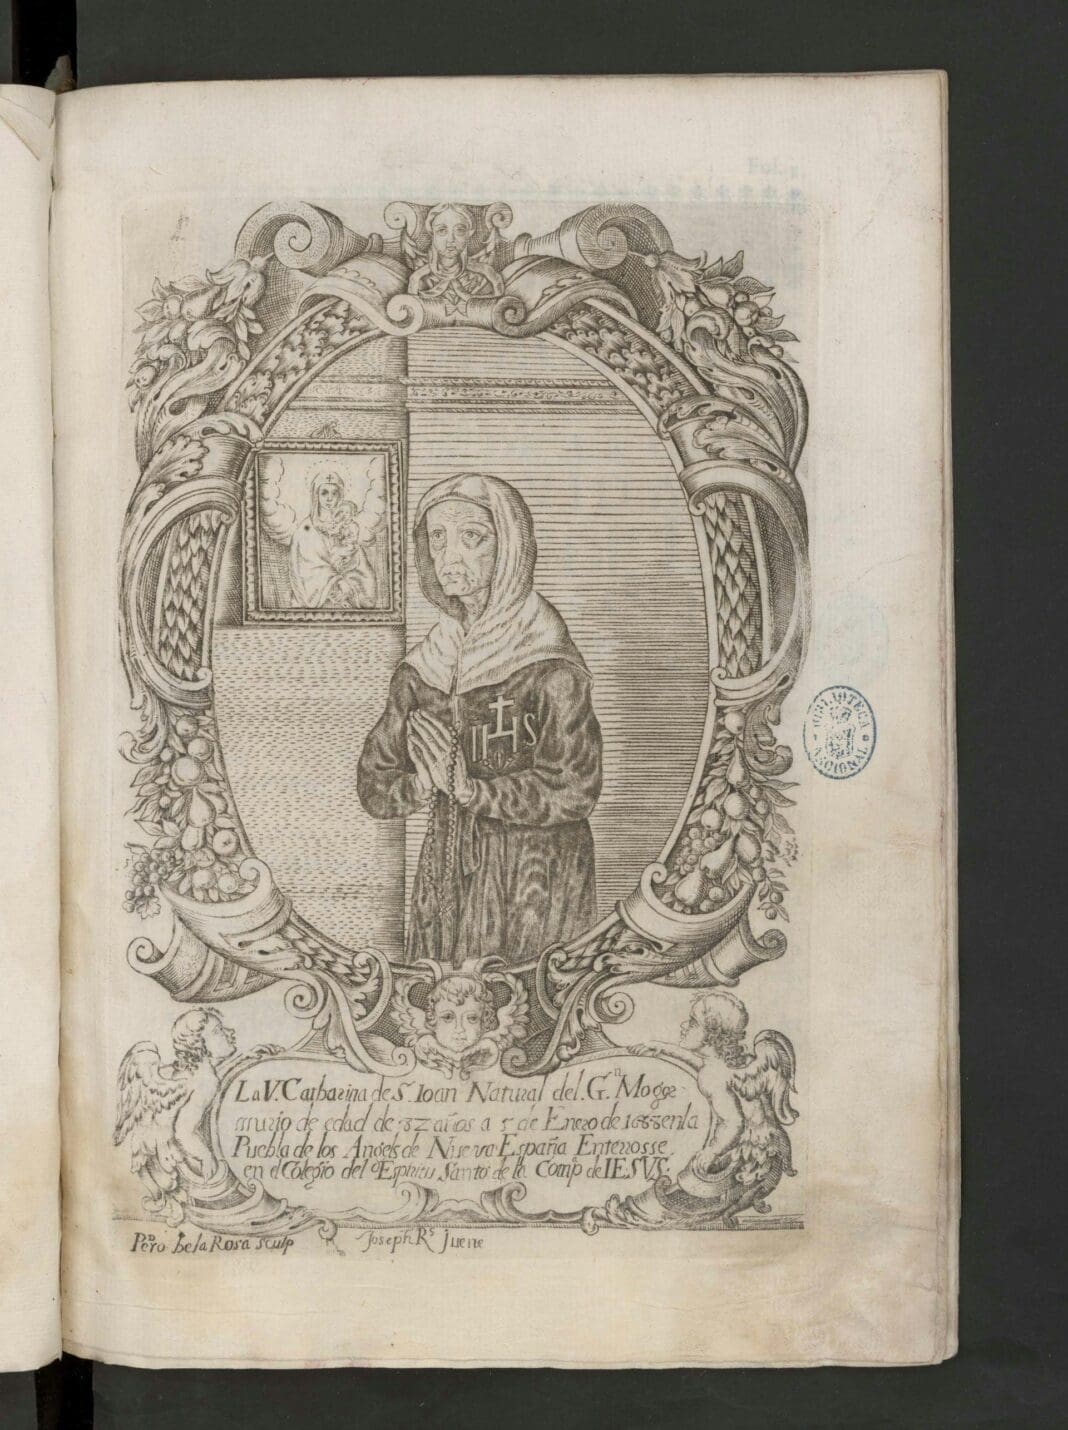 Fol. 1
IHS
BIBLIOTECA NACIONAL
La V. Catharina de S. Ioan Natural del. G.n Mogor
murio de edad de 82 años a 5 de Enero de 1688 en la
Puebla de los Angels de Nueva España Enterrosse
en el Colegio del Espiritu Santo de la Comp.a de IESVS.
Pedro de la Rosa sculp Joseph R.s